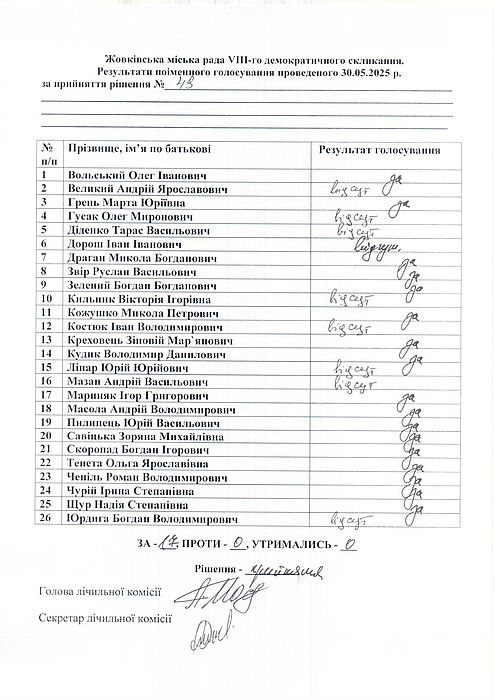 Жовківська міська рада VIII-го демократичного скликання.
Результати поіменного голосування проведеного 30.05.2025 р.
за прийняття рішення № 43
№ п/п Прізвище, ім’я по батькові Результат голосування
1 Вольський Олег Іванович да
2 Великий Андрій Ярославович відсут
3 Грень Марта Юріївна да
4 Гусак Олег Миронович відсут
5 Діденко Тарас Васильович відсут
6 Дорош Іван Іванович
7 Драган Микола Богданович да
8 Звір Руслан Васильович да
9 Зелений Богдан Богданович да
10 Кильник Вікторія Ігорівна відсут
11 Кожушко Микола Петрович да
12 Костюк Іван Володимирович відсут
13 Креховець Зіновій Мар`янович да
14 Кудик Володимир Данилович да
15 Ліпар Юрій Юрійович відсут
16 Мазан Андрій Васильович відсут
17 Мариняк Ігор Григорович да
18 Масола Андрій Володимирович да
19 Пилипець Юрій Васильович да
20 Савіцька Зоряна Михайлівна да
21 Скоропад Богдан Ігорович да
22 Тенета Ольга Ярославівна да
23 Чепіль Роман Володимирович да
24 Чурій Ірина Степанівна да
25 Щур Надія Степанівна да
26 Юрдига Богдан Володимирович відсут
ЗА - 17, ПРОТИ - 0, УТРИМАЛИСЬ - 0
Рішення - прийнято
Голова лічильної комісії
Секретар лічильної комісії